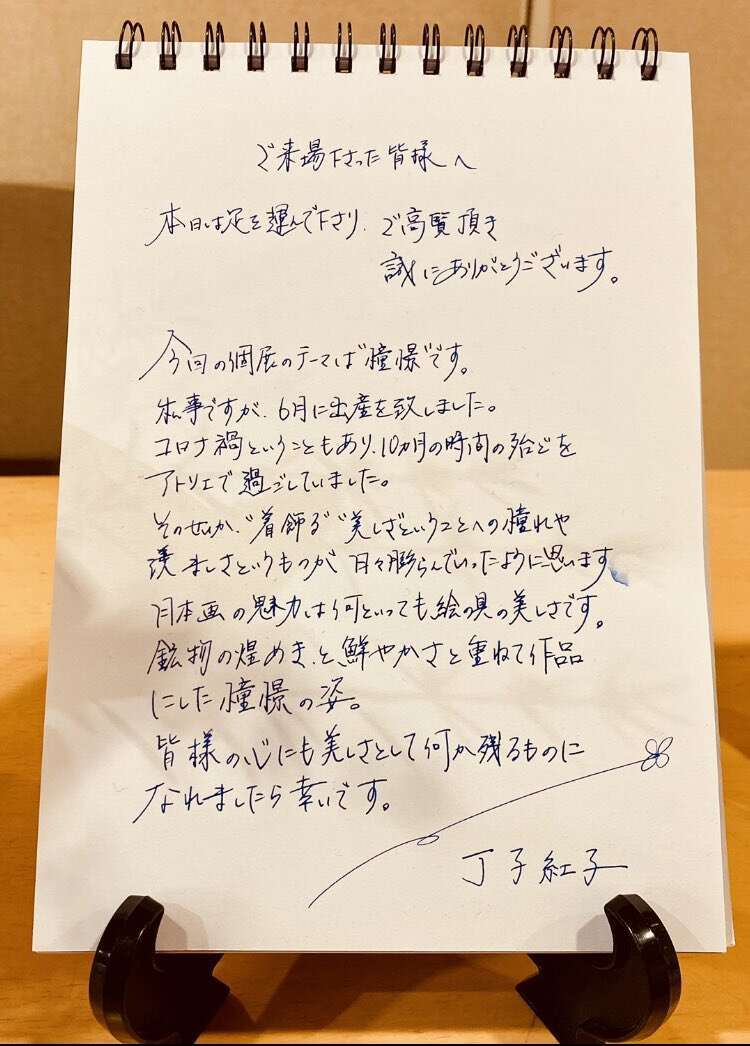 ご来場下さった皆様へ
本日は足を運んで下さり、ご高覧頂き
誠にありがとうございます。
今回の個展のテーマは"憧憬"です。
私事ですが、6月に出産を致しました。
コロナ禍ということもあり、10ヵ月の時間の殆どを
アトリエで過ごしていました。
そのせいか、"着飾る""美しさ"ということへの憧れや
羨ましさというものが日々膨らんでいったように思います
日本画の魅力は何といっても絵の具の美しさです。
鉱物の煌めきと鮮やかさと重ねて作品
にした憧憬の姿。
皆様の心にも美しさとして何か残るものに
なれましたら幸いです。
丁子紅子